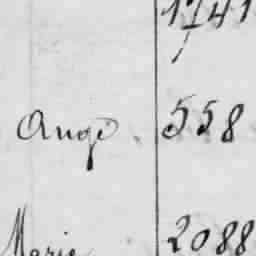 1741
Ange. 558
Marie 2088